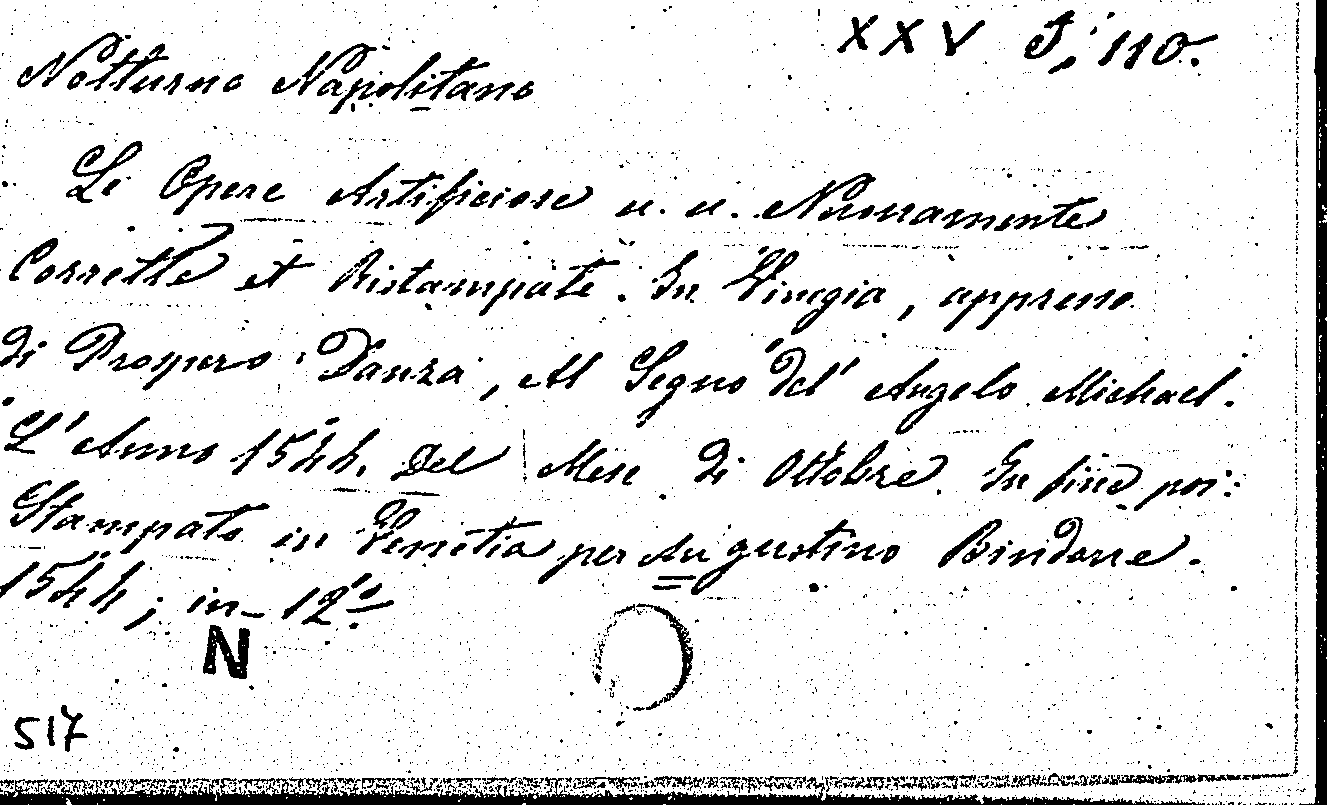 XXV J, 110.
Notturno Napolitano
Le Opere Artificiose u. u. Nuovamente
Corrette et Ristampate. In Vinegia, appresso
di Prospero Danza, Al Segno del' Angelo Michael.
L'Anno 1544. Del Mese di Ottobre. In fine poi:
Stampato in Venetia per Augustino Bindone.
1544; in-12º
N
517